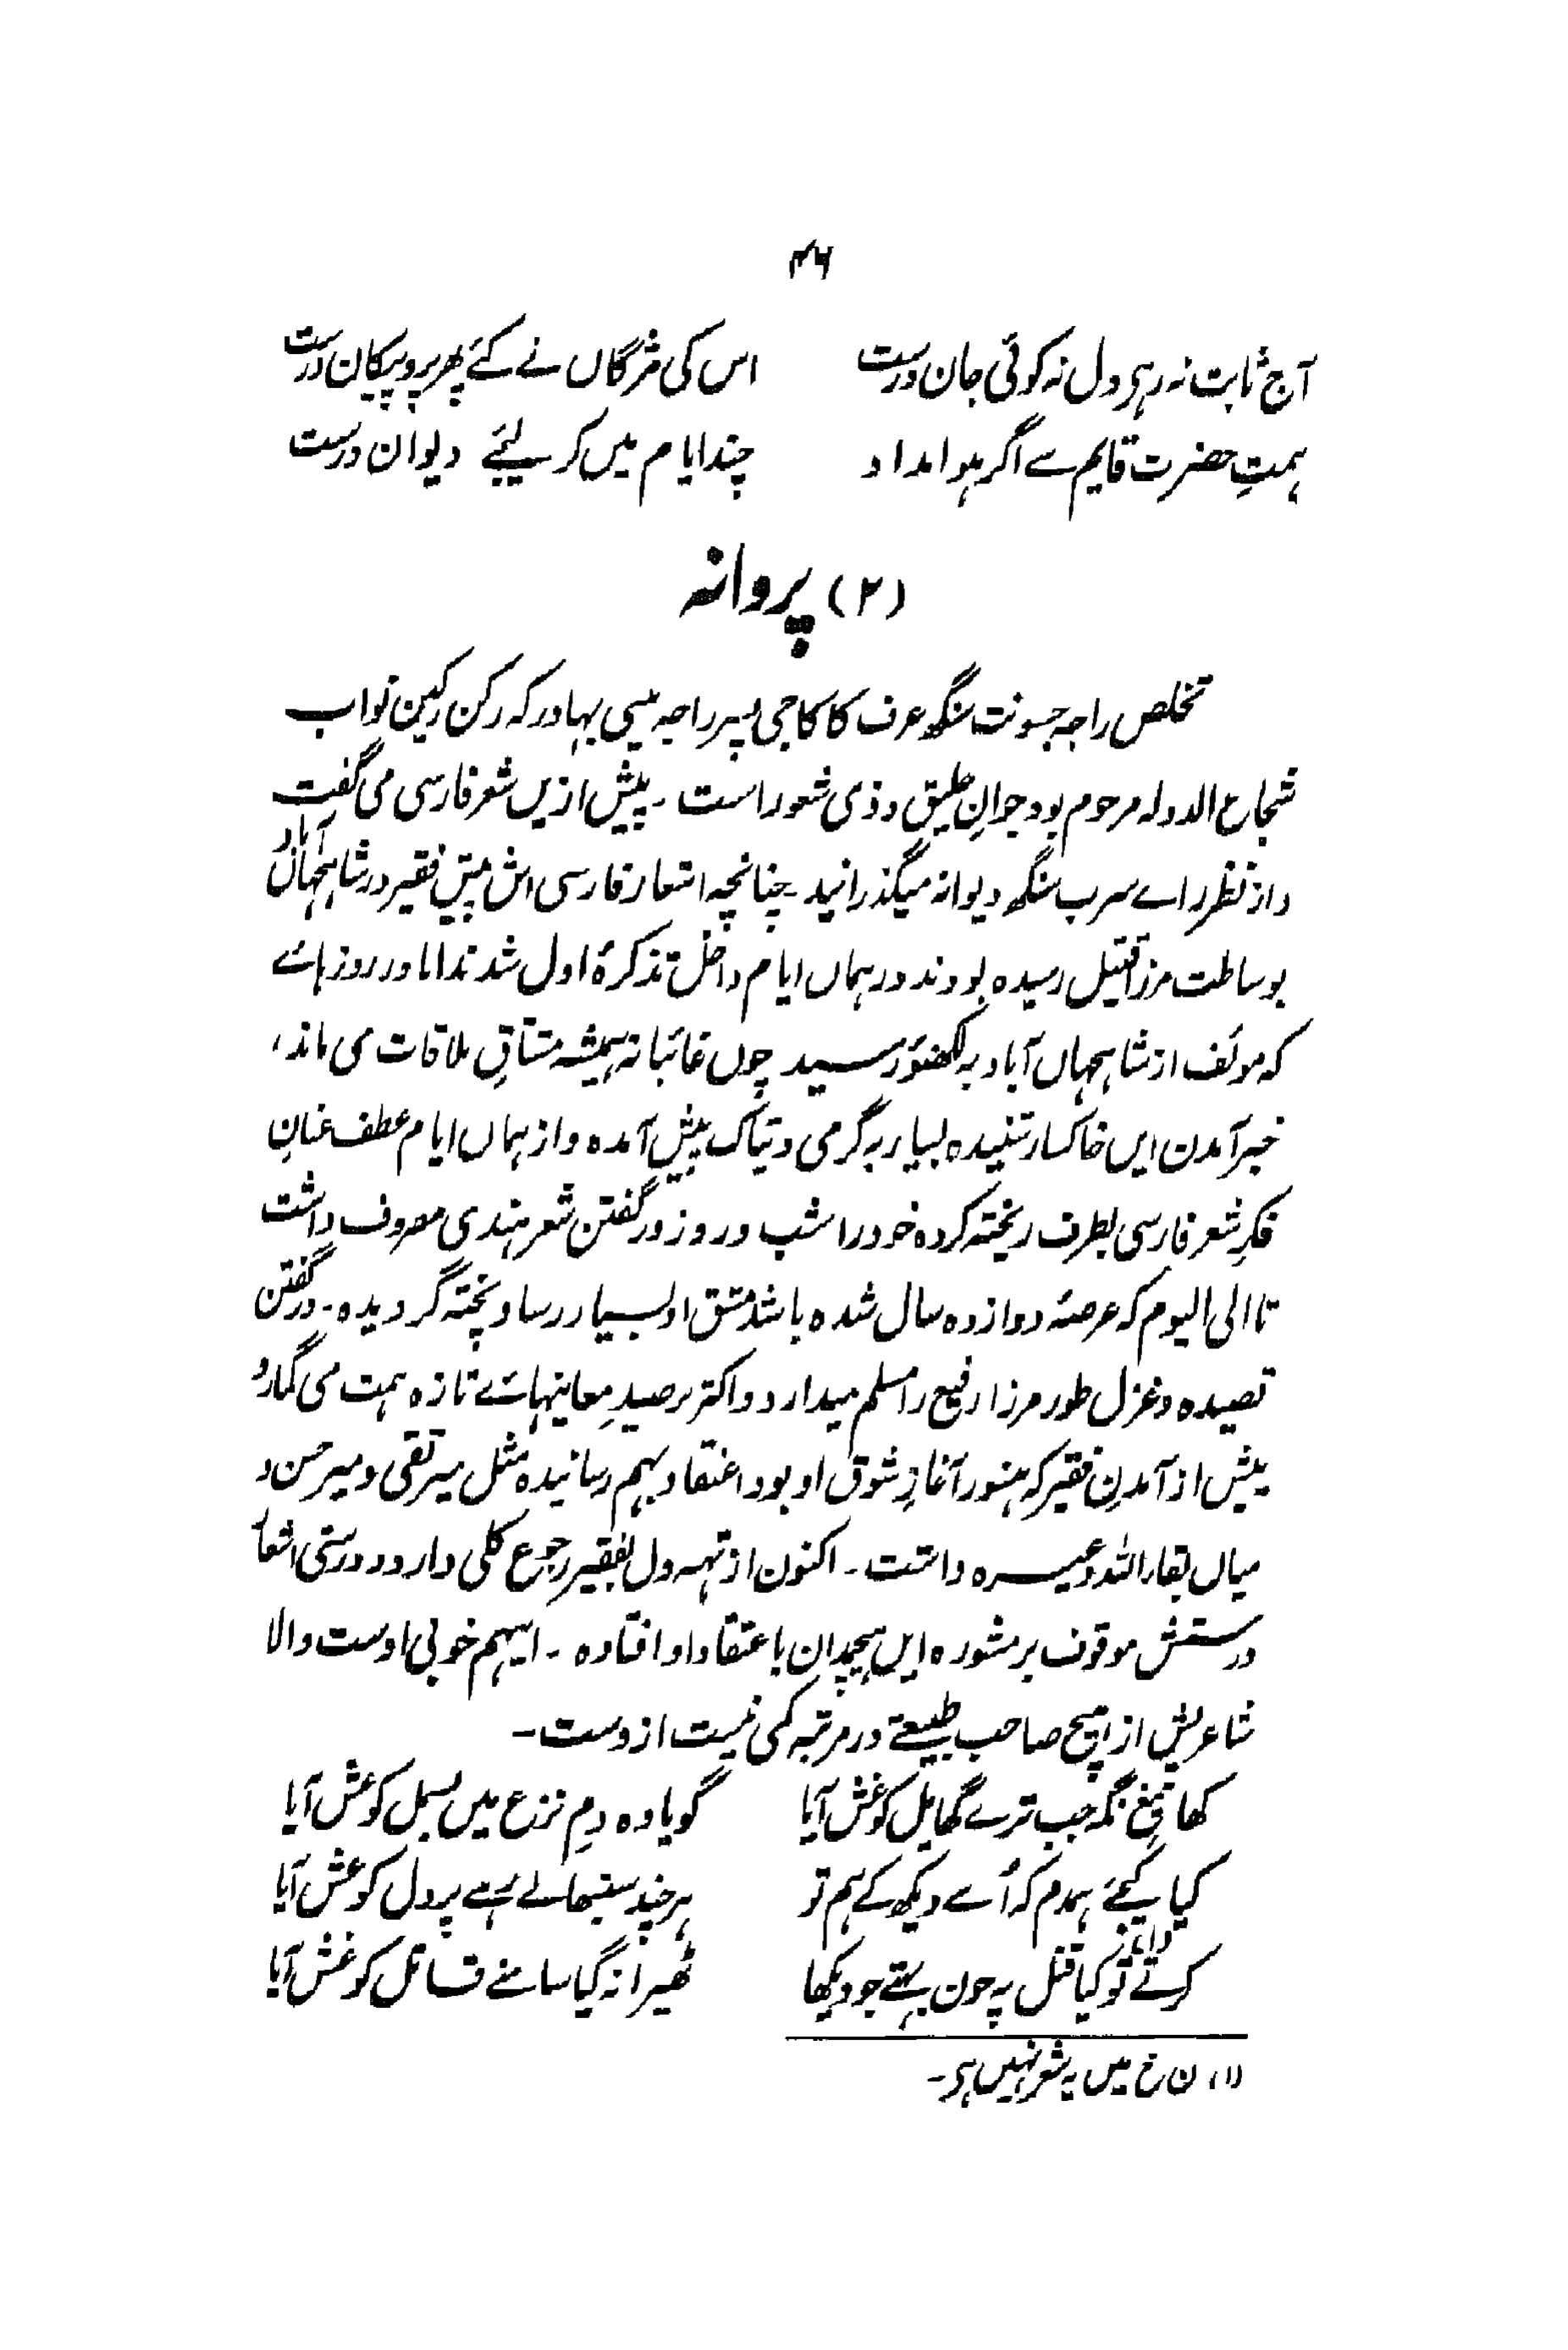 ۴۶
آج ثابت نہ رہی دل نہ کوئی جان درست اس کی مژگاں نے کئے پھر پر و پیکان درست
ہمتِ حضرت قایم سے اگر ہو امداد چند ایام میں کر لیجئے دیوان درست
(۲) پروانہ
تخلص راجہ جسونت سنگھ عرف کاکاجی پسر راجہ بینی بہادر کہ رکن رکین نواب
شجاع الدولہ مرحوم بود جوانِ خلیق و ذی شعور است ۔ پیش ازیں شعر فارسی می گفت
و از نظر راے سرب سنگھ دیوانہ میگذرانید ۔ چنانچہ اشعار فارسی اش پیش فقیر در شاہجہان آباد
بوساطت مرزا قتیل رسیدہ بودند در ہماں ایام داخل تذکرۂ اول شدند اما در روزہائے
کہ مولف از شاہجہاں آباد بہ لکھنؤ رسید چوں غائبانہ ہمیشہ مشتاقِ ملاقات می ماند،
خبر آمدن ایں خاکسار شنیدہ بسیار بہ گرمی و تپاک پیش آمدہ و از ہماں ایام عطف عنانِ
فکرِ شعر فارسی بطرف ریختہ کردہ خود را شب و روز در گفتن شعر ہندی مصروف داشت
تا الی الیوم کہ عرصۂ دوازدہ سال شدہ باشد مشق او بسیار رسا و پختہ گردیدہ ۔ در گفتن
قصیدہ و غزل طور مرزا رفیع را مسلم میدارد و اکثر بر صیدِ معاینہائے تازہ ہمت می گمارد
پیش از آمدنِ فقیر کہ ہنوز آغازِ شوق او بود اعتقاد بہم رسانیدہ مثل میر تقی و میر حسن و
میاں بقاء اللہ وغیرہ داشت ۔ اکنون از تہہ دل بفقیر رجوع کلی دارد و درستی اشعار
درستش موقوف بر مشورہ ایں ہیچمدان باعتقاد او افتادہ ۔ اینہم خوبی اوست والا
شاعریش از ہیچ صاحب طبیعتے در مرتبہ کمی نیست از دست ۔
کھا تیغِ نگہ جب ترے گھایل کو غش آیا گویا وہ دمِ نزع میں بسمل کو غش آیا
کیا کیجئے ہمدم کہ اُسے دیکھ کے ہم تو ہر چند سنبھالے رہے پر دل کو غش آیا
کرتے تو کیا قتل پہ خون بہتے جو دیکھا ٹھیرا نہ گیا سامنے قاتل کو غش آیا
(۱) ن خ میں یہ شعر نہیں ہی ۔